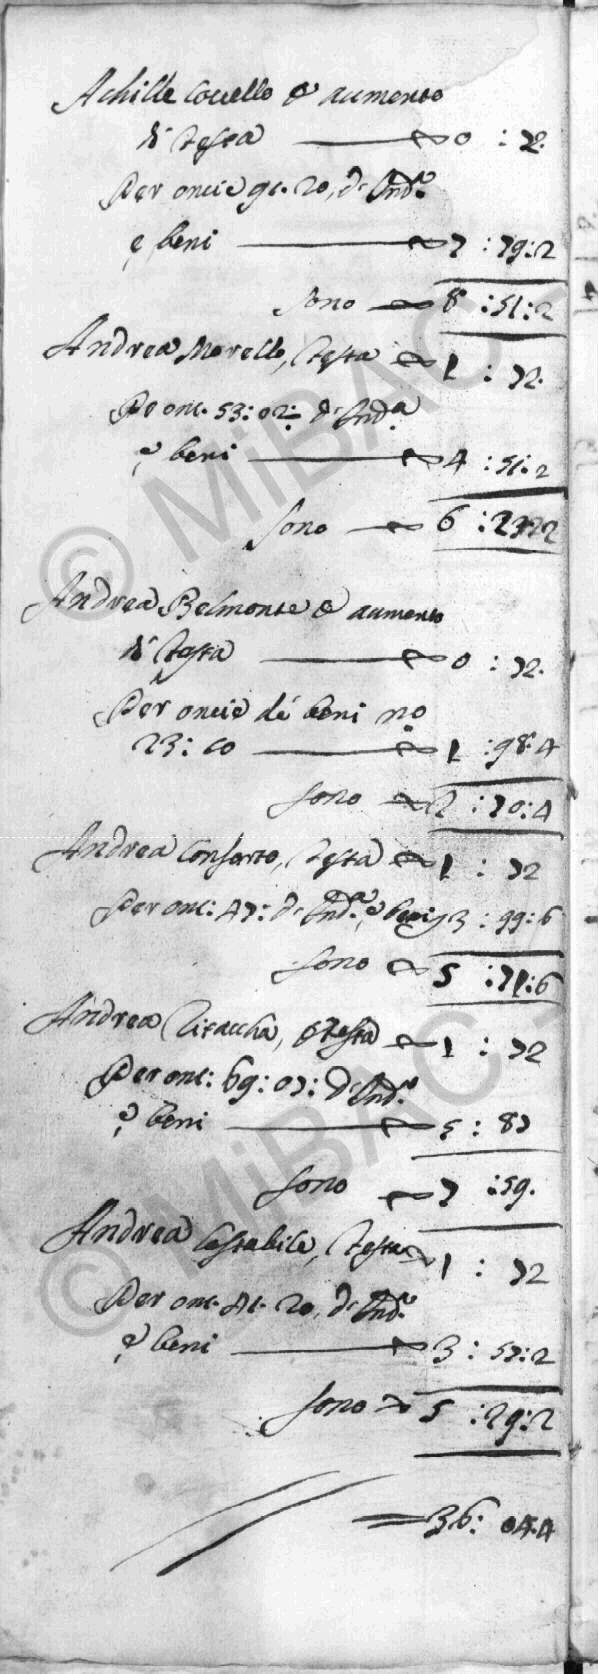 Achille Covello p aumento
di testa 0 : 72.
Per oncie 91. 20, d'Ind.a
e beni 7 : 79:2
sono 8 :51:2
Andrea Morello, testa 1 : 72.
Per onc. 53: 02: d'Ind.a
e beni 4 :51:2
sono 6 :23:2
Andrea Belmonte p aumento
di testa 0 : 72.
Per oncie de beni no
23: 10 1 :98:4
sono 2 :70:4
Andrea Conforto, testa 1 : 72
Per onc: 47: d'Ind.a e beni 3 : 99:6
sono 5 :71:6
Andrea, p testa 1 : 72
Per onc: 69: 07: d'Ind.a
e beni 5 : 87
sono 7 :59.
Andrea Costabile, testa 1 : 72
Per onc. 41. 20, d'Ind.a
e beni 3 : 57:2
sono 5 :29:2
36: 04.4
© MiBAC
© MiBAC